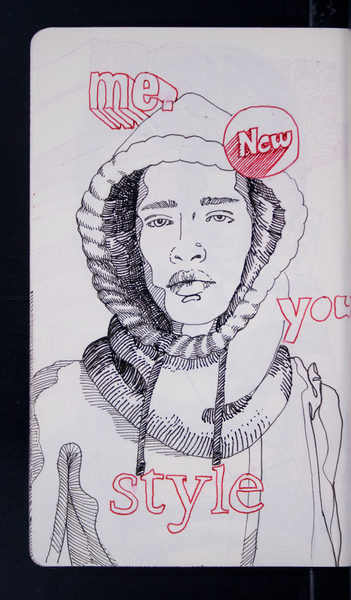 me.
New
you
style